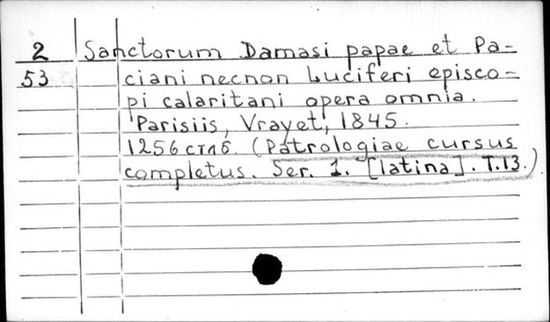 2 Sanctorum Damasi papae et Pa-
53 ciani necnon Luciferi episco-
pi calaritani opera omnia.
Parisiis, Vrayet, 1845.
1256 стлб. (Patrologiae cursus
completus. Ser. 1. [latina]. T.13.)